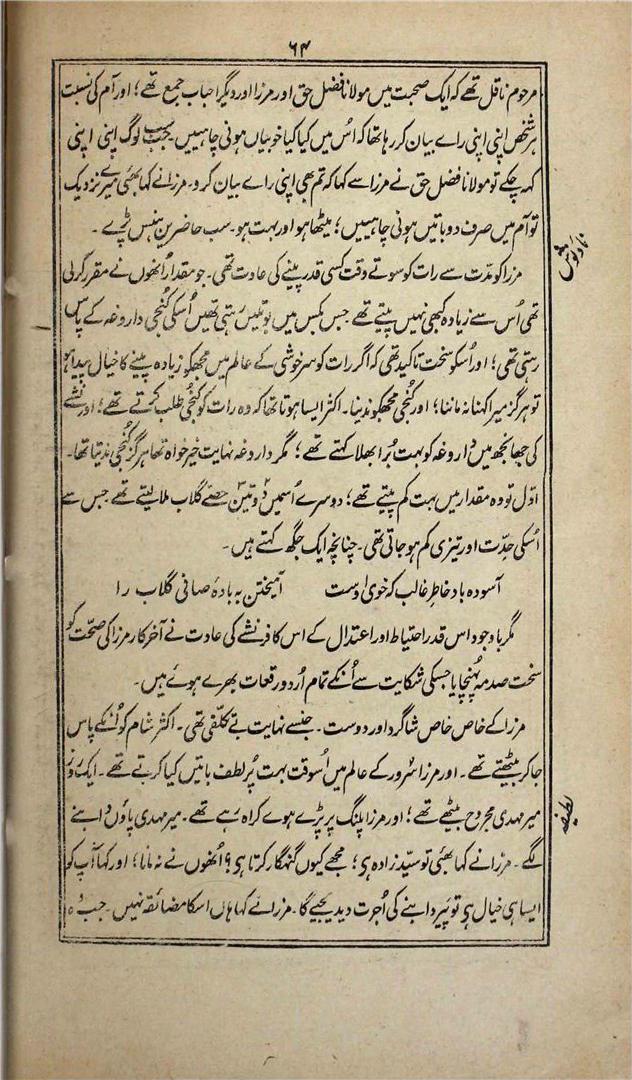 ۶۴
مرحوم ناقل تھے کہ ایک صحبت میں مولانا فضل حق اور مرزا اور دیگر احباب جمع تھے؛ اور آم کی نسبت
ہر شخص اپنی اپنی راے بیان کر رہا تھا کہ اُس میں کیا کیا خوبیاں ہونی چاہییں۔ جب سب لوگ اپنی اپنی
کہہ چکے تو مولانا فضل حق نے مرزا سے کہا کہ تم بھی اپنی راے بیان کرو۔ مرزا نے کہا بھئی میرے نزدیک
تو آم میں صرف دو باتیں ہونی چاہییں؛ میٹھا ہو اور بہت ہو۔ سب حاضرین ہنس پڑے۔
مرزا کو مدّت سے رات کو سوتے وقت کسی قدر پینے کی عادت تھی۔ جو مقدار اُنھوں نے مقرر کر لی
تھی اُس سے زیادہ کبھی نہیں پیتے تھے جس بکس میں بوتلیں رہتی تھیں اُسکی کُنجی داروغہ کے پاس
رہتی تھی؛ اور اُسکو سخت تاکید تھی کہ اگر رات کو سرخوشی کے عالم میں مجھکو زیادہ پینے کا خیال پیدا ہو
تو ہرگز میرا کہنا نہ ماننا؛ اور کُنجی مجھکو ندینا۔ اکثر ایسا ہوتا تھا کہ وہ رات کو کُنجی طلب کرتے تھے؛ اور نشے
کی جھانجھ میں داروغہ کو بہت بُرا بھلا کہتے تھے؛ مگر داروغہ نہایت خیر خواہ تھا ہرگز کُنجی ندیتا تھا۔
اوّل تو وہ مقدار میں بہت کم پیتے تھے؛ دوسرے اُسمیں دو تین حصّے گلاب ملا لیتے تھے جس سے
اُسکی حِدّت اور تیزی کم ہو جاتی تھی۔ چنانچہ ایک جگہ کہتے ہیں۔
آسودہ باد خاطرِ غالب کہ خوی اوست آمیختن بہ بادۂ صافی گلاب را
مگر باوجود اس قدر احتیاط اور اعتدال کے اس کافر نشے کی عادت نے آخرکار مرزا کی صحّت کو
سخت صدمہ پہنچایا جسکی شکایت سے اُنکے تمام اُردو رقعات بھرے ہوئے ہیں۔
مرزا کے خاص خاص شاگرد اور دوست۔ جنسے نہایت بے تکلّفی تھی۔ اکثر شام کو اُنکے پاس
جا کر بیٹھتے تھے۔ اور مرزا سُرور کے عالم میں اُسوقت بہت پُر لطف باتیں کیا کرتے تھے۔ ایک روز
لطیفہ
میر مہدی مجروح بیٹھے تھے؛ اور مرزا پلنگ پر پڑے ہوے کراہ رہے تھے۔ میر مہدی پاؤں دابنے
لگے۔ مرزا نے کہا بھئی تو سیّد زادہ ہی؛ مجھے کیوں گنہگار کرتا ہی؟ اُنھوں نے نہ مانا؛ اور کہا آپ کو
ایسا ہی خیال ہی تو پیر دابنے کی اُجرت دیدیجیے گا۔ مرزا نے کہا ہاں اسکا مضائقہ نہیں۔ جب وہ